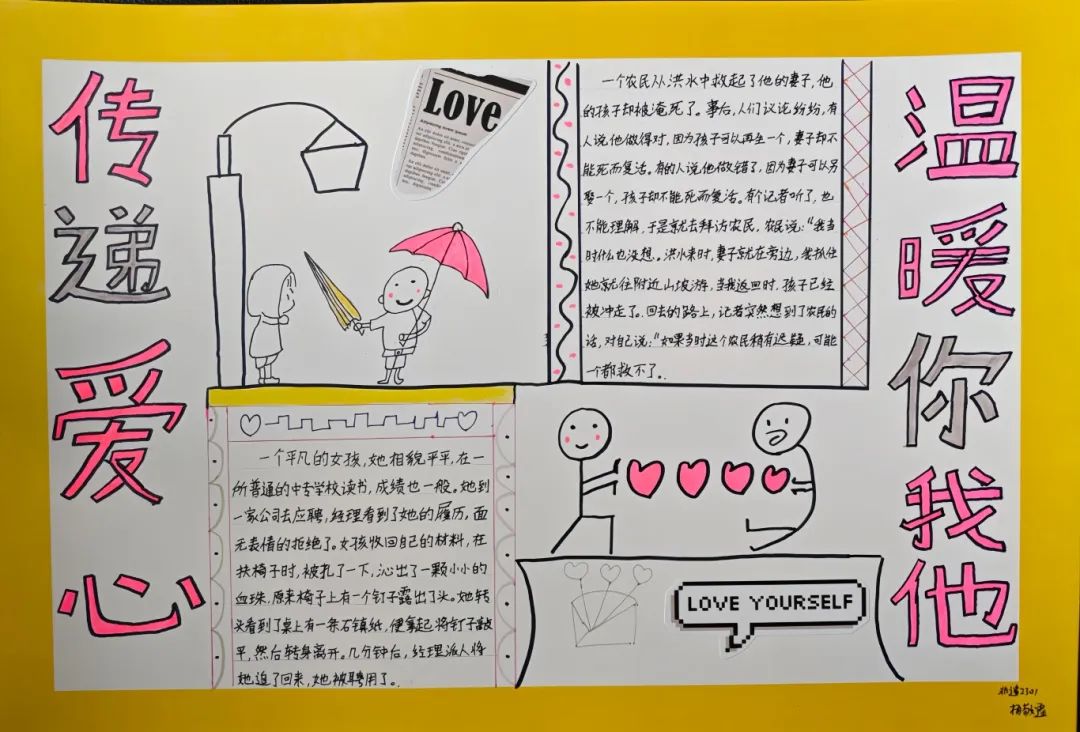 传递爱心
Love
一个农民从洪水中救起了他的妻子,他
的孩子却被淹死了。事后,人们议论纷纷,有
人说他做得对,因为孩子可以再生一个,妻子却不
能死而复活。有的人说他做错了,因为妻子可以另
娶一个,孩子却不能死而复活。有个记者听了,也
不能理解,于是就去拜访农民,农民说:“我当
时什么也没想。洪水来时,妻子就在旁边,我抓住
她就往附近山坡游,当我返回时,孩子已经
被冲走了。回去的路上,记者突然想到了农民的
话,对自己说:“如果当时这个农民稍有迟疑,可能
一个都救不了。
温暖你我他
一个平凡的女孩,她相貌平平,在一
所普通的中专学校读书,成绩也一般。她到
一家公司去应聘,经理看到了她的履历,面
无表情的拒绝了。女孩收回自己的材料,在
扶椅子时,被扎了一下,沁出了一颗小小的
血珠,原来椅子上有一个钉子露出了头。她转
头看到了桌上有一条石镇纸,便拿起将钉子敲
平,然后转身离开。几分钟后,经理派人将
她追了回来,她被聘用了。
LOVE YOURSELF
2301